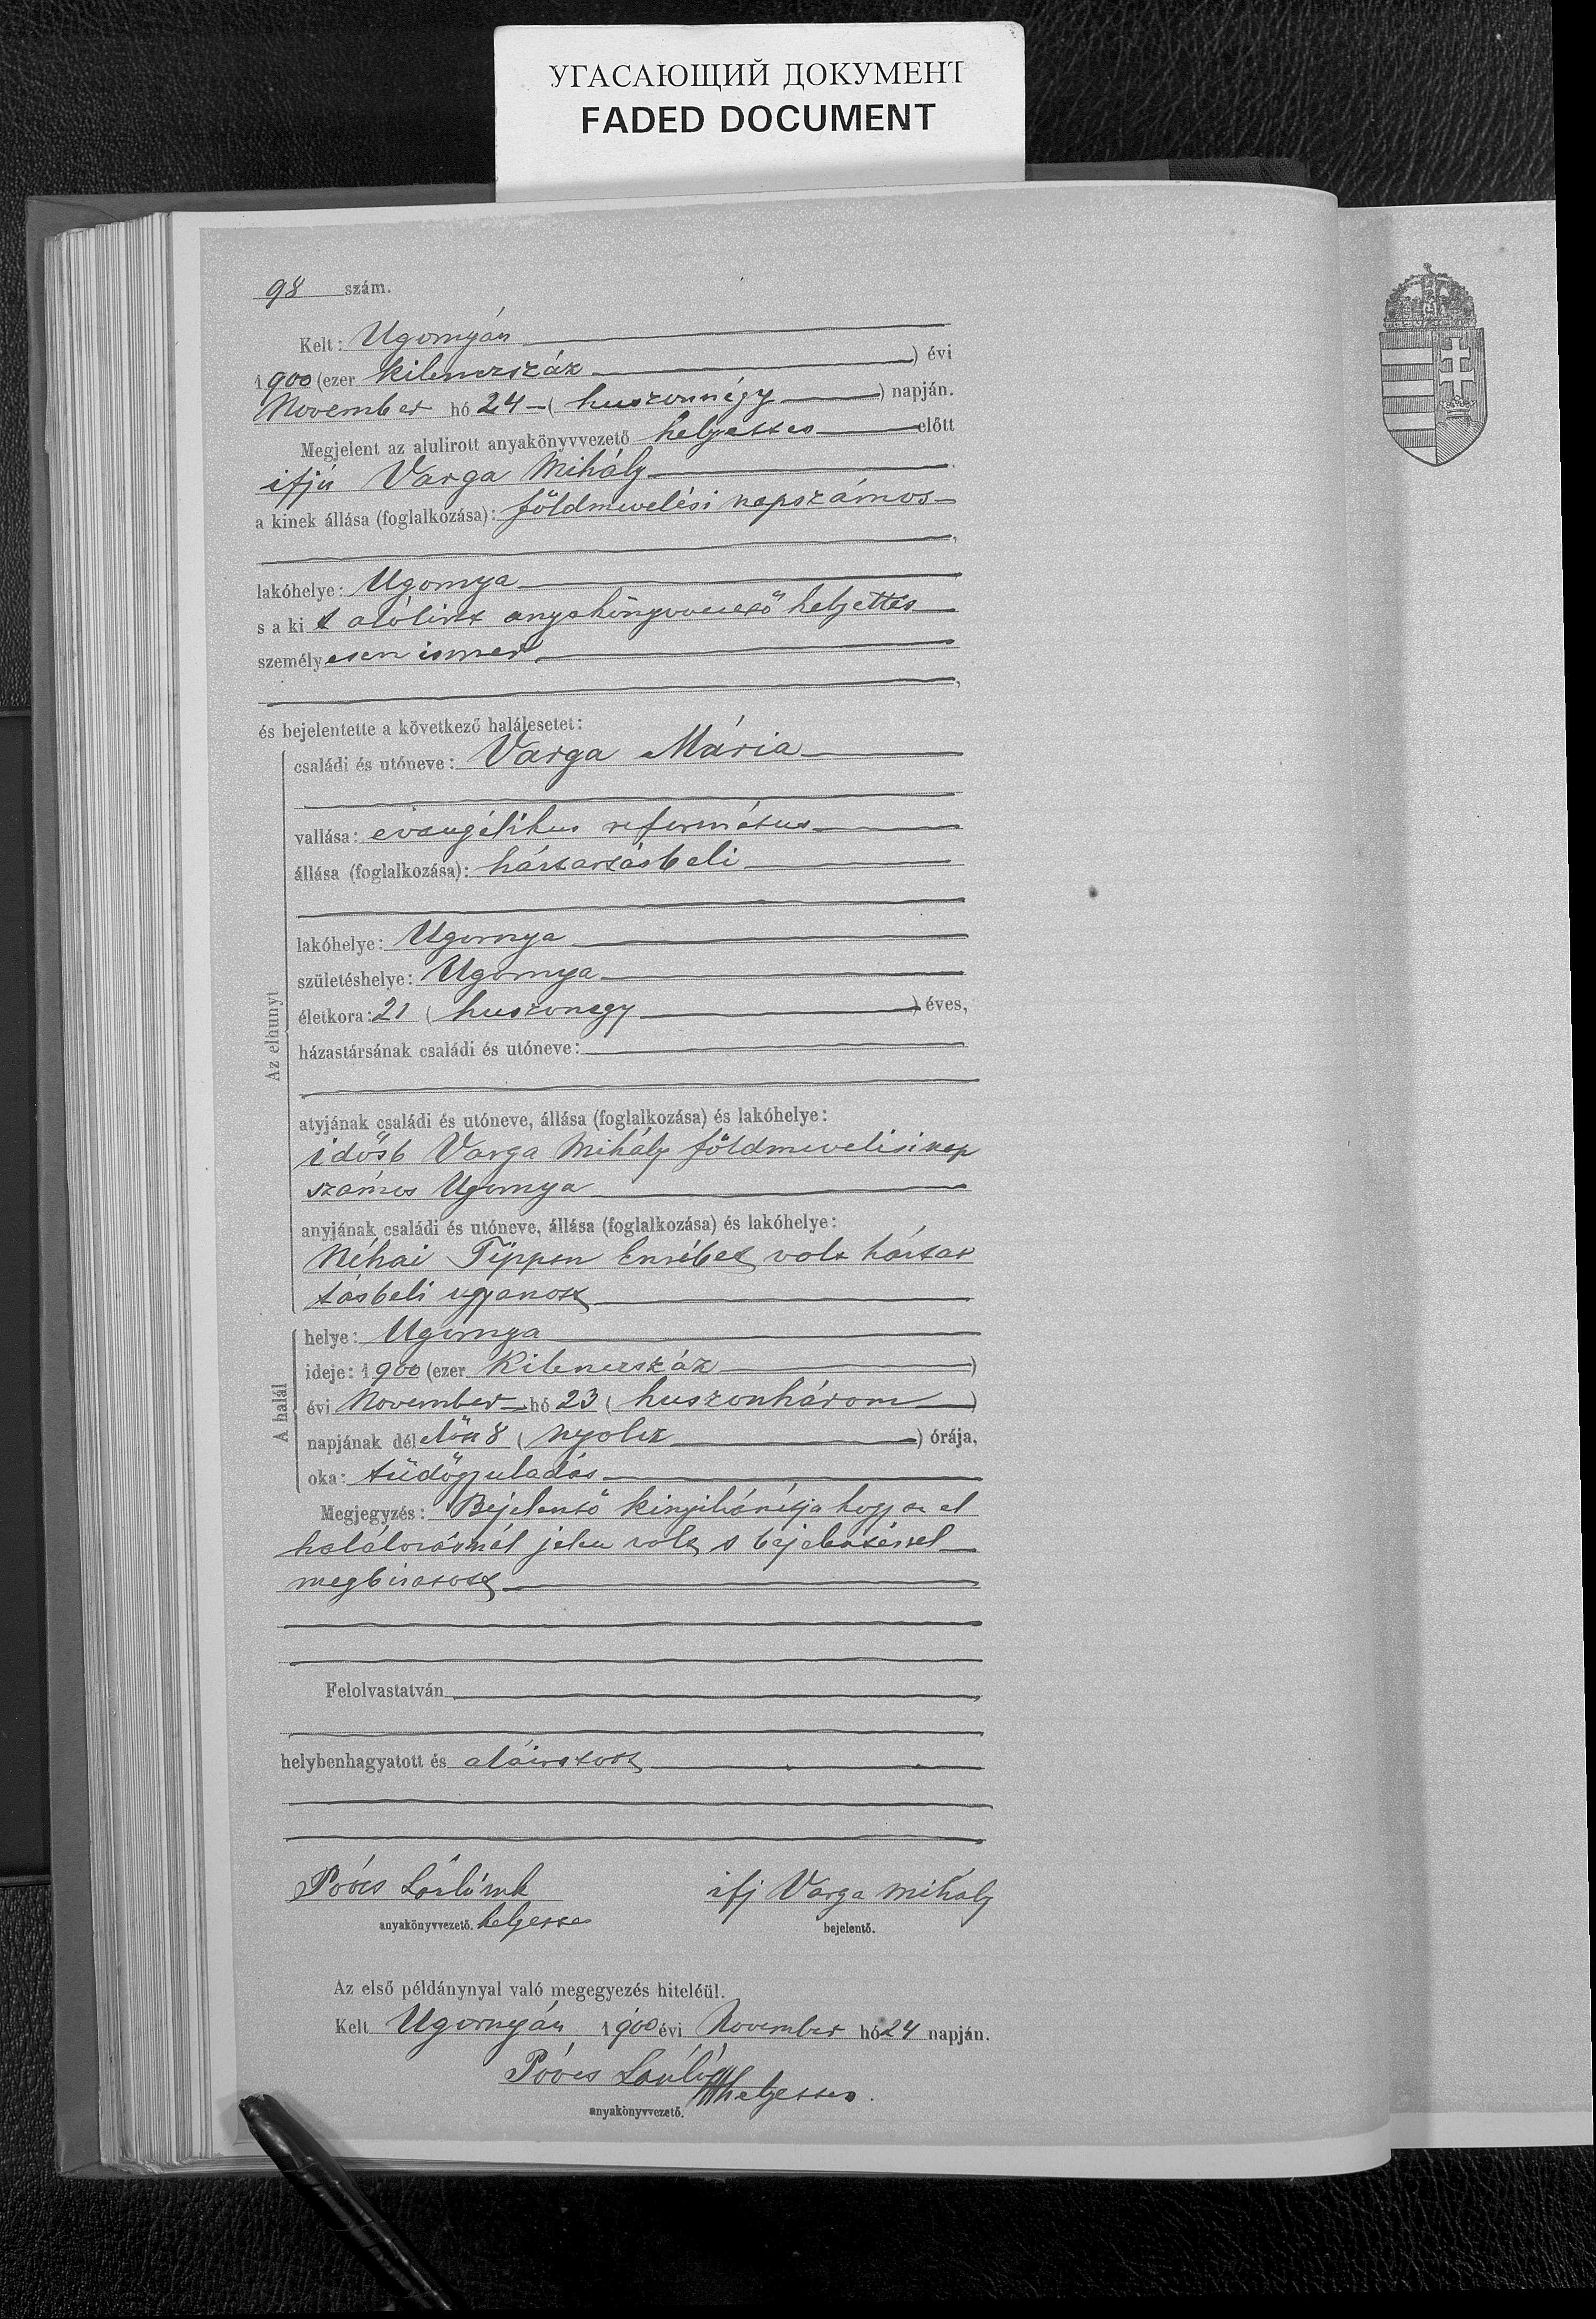 УГАСАЮЩИЙ ДОКУМЕНТ
FADED DOCUMENT
98 szám.
Kelt: Ugornyán
1900 (ezer kilenczszáz ) évi
November hó 24 – ( huszonnégy ) napján.
Megjelent az alulirott anyakönyvvezető helyettes előtt
ifjú Varga Mihály
a kinek állása (foglalkozása): földmivelési napszámos
lakóhelye: Ugornya
s a ki t alólirt anyakönyvvezető helyettes
személyesen ismer,
és bejelentette a következő halálesetet:
Az elhunyt
családi és utóneve: Varga Mária
vallása: evangélikus református
állása (foglalkozása): háztartásbeli
lakóhelye: Ugornya
születéshelye: Ugornya
életkora: 21 ( huszonegy ) éves,
házastársának családi és utóneve:
atyjának családi és utóneve, állása (foglalkozása) és lakóhelye:
idősb Varga Mihály földmivelési nap
számos Ugornya
anyjának családi és utóneve, állása (foglalkozása) és lakóhelye:
Néhai Erzsébet volt háztar
tásbeli ugyanott
A halál
helye: Ugornya
ideje: 1900 (ezer Kilenczszáz )
évi November hó 23 ( huszonhárom )
napjának délelőtt 8 ( nyolcz ) órája,
oka: tüdőgyuladás
Megjegyzés: Bejelentő kinyilvánítja hogy az el
halálozásnál jelen volt s bejelentéssel
megbizatott
Felolvastatván
helybenhagyatott és aláiratott
anyakönyvvezető. helyettes
ifj Varga Mihály
bejelentő.
Az első példánynyal való megegyezés hiteléül.
Kelt Ugornyán 1900 évi November hó 24 napján.
helyettes.
anyakönyvvezető.